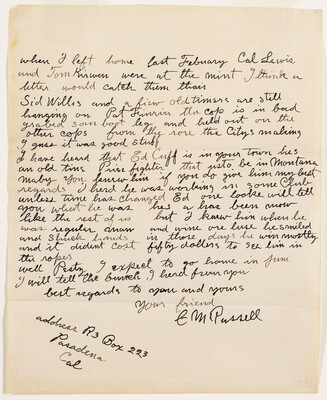 when I left home last Febuary Cal Lewis
and Tom Kirwen were at the mint I think a
letter would catch them thair
Sid Willis and a fiew oldtimers are still
hanging on Pat Finnin the cop is in bad
grabed som boot leg and held out on the
other cops from the rore the Citys making
I guess it was good stuff
I have heard that Ed Cuff is in your town hes
an old time Prise fighter that usto be in Montana
maby you know him if you do give him my best
regards I herd he was working in some Club
unless time has changed Ed one looke will tell
you what he was hes a has been now
like the rest of us but I knew him when he
was regular draw and wine ore luse he smiled
and shuck hands in those days he win mostly
and it dident cost fifty dollars to see him in
the ropes
well Pesty I expect to go home in June
I will tell the bunch I herd from you
best regards to you and yours
Your friend
C M Russell
address R3 Box 223
Pasadena
Cal